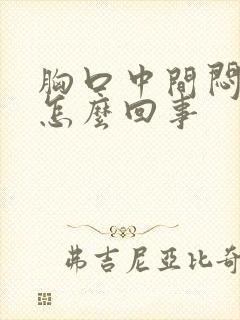 胸口中間悶
怎麼回事
弗吉尼亞比奇